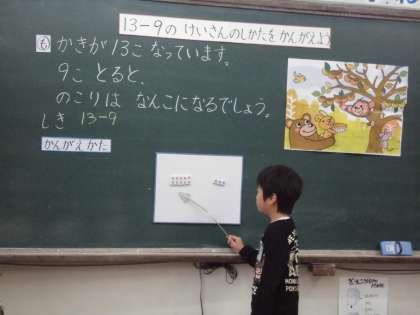 13-9の けいさんのしかたを かんがえよう
も かきが 13こ なっています。
9こ とると、
のこりは なんこになるでしょう。
しき 13-9
かんがえかた